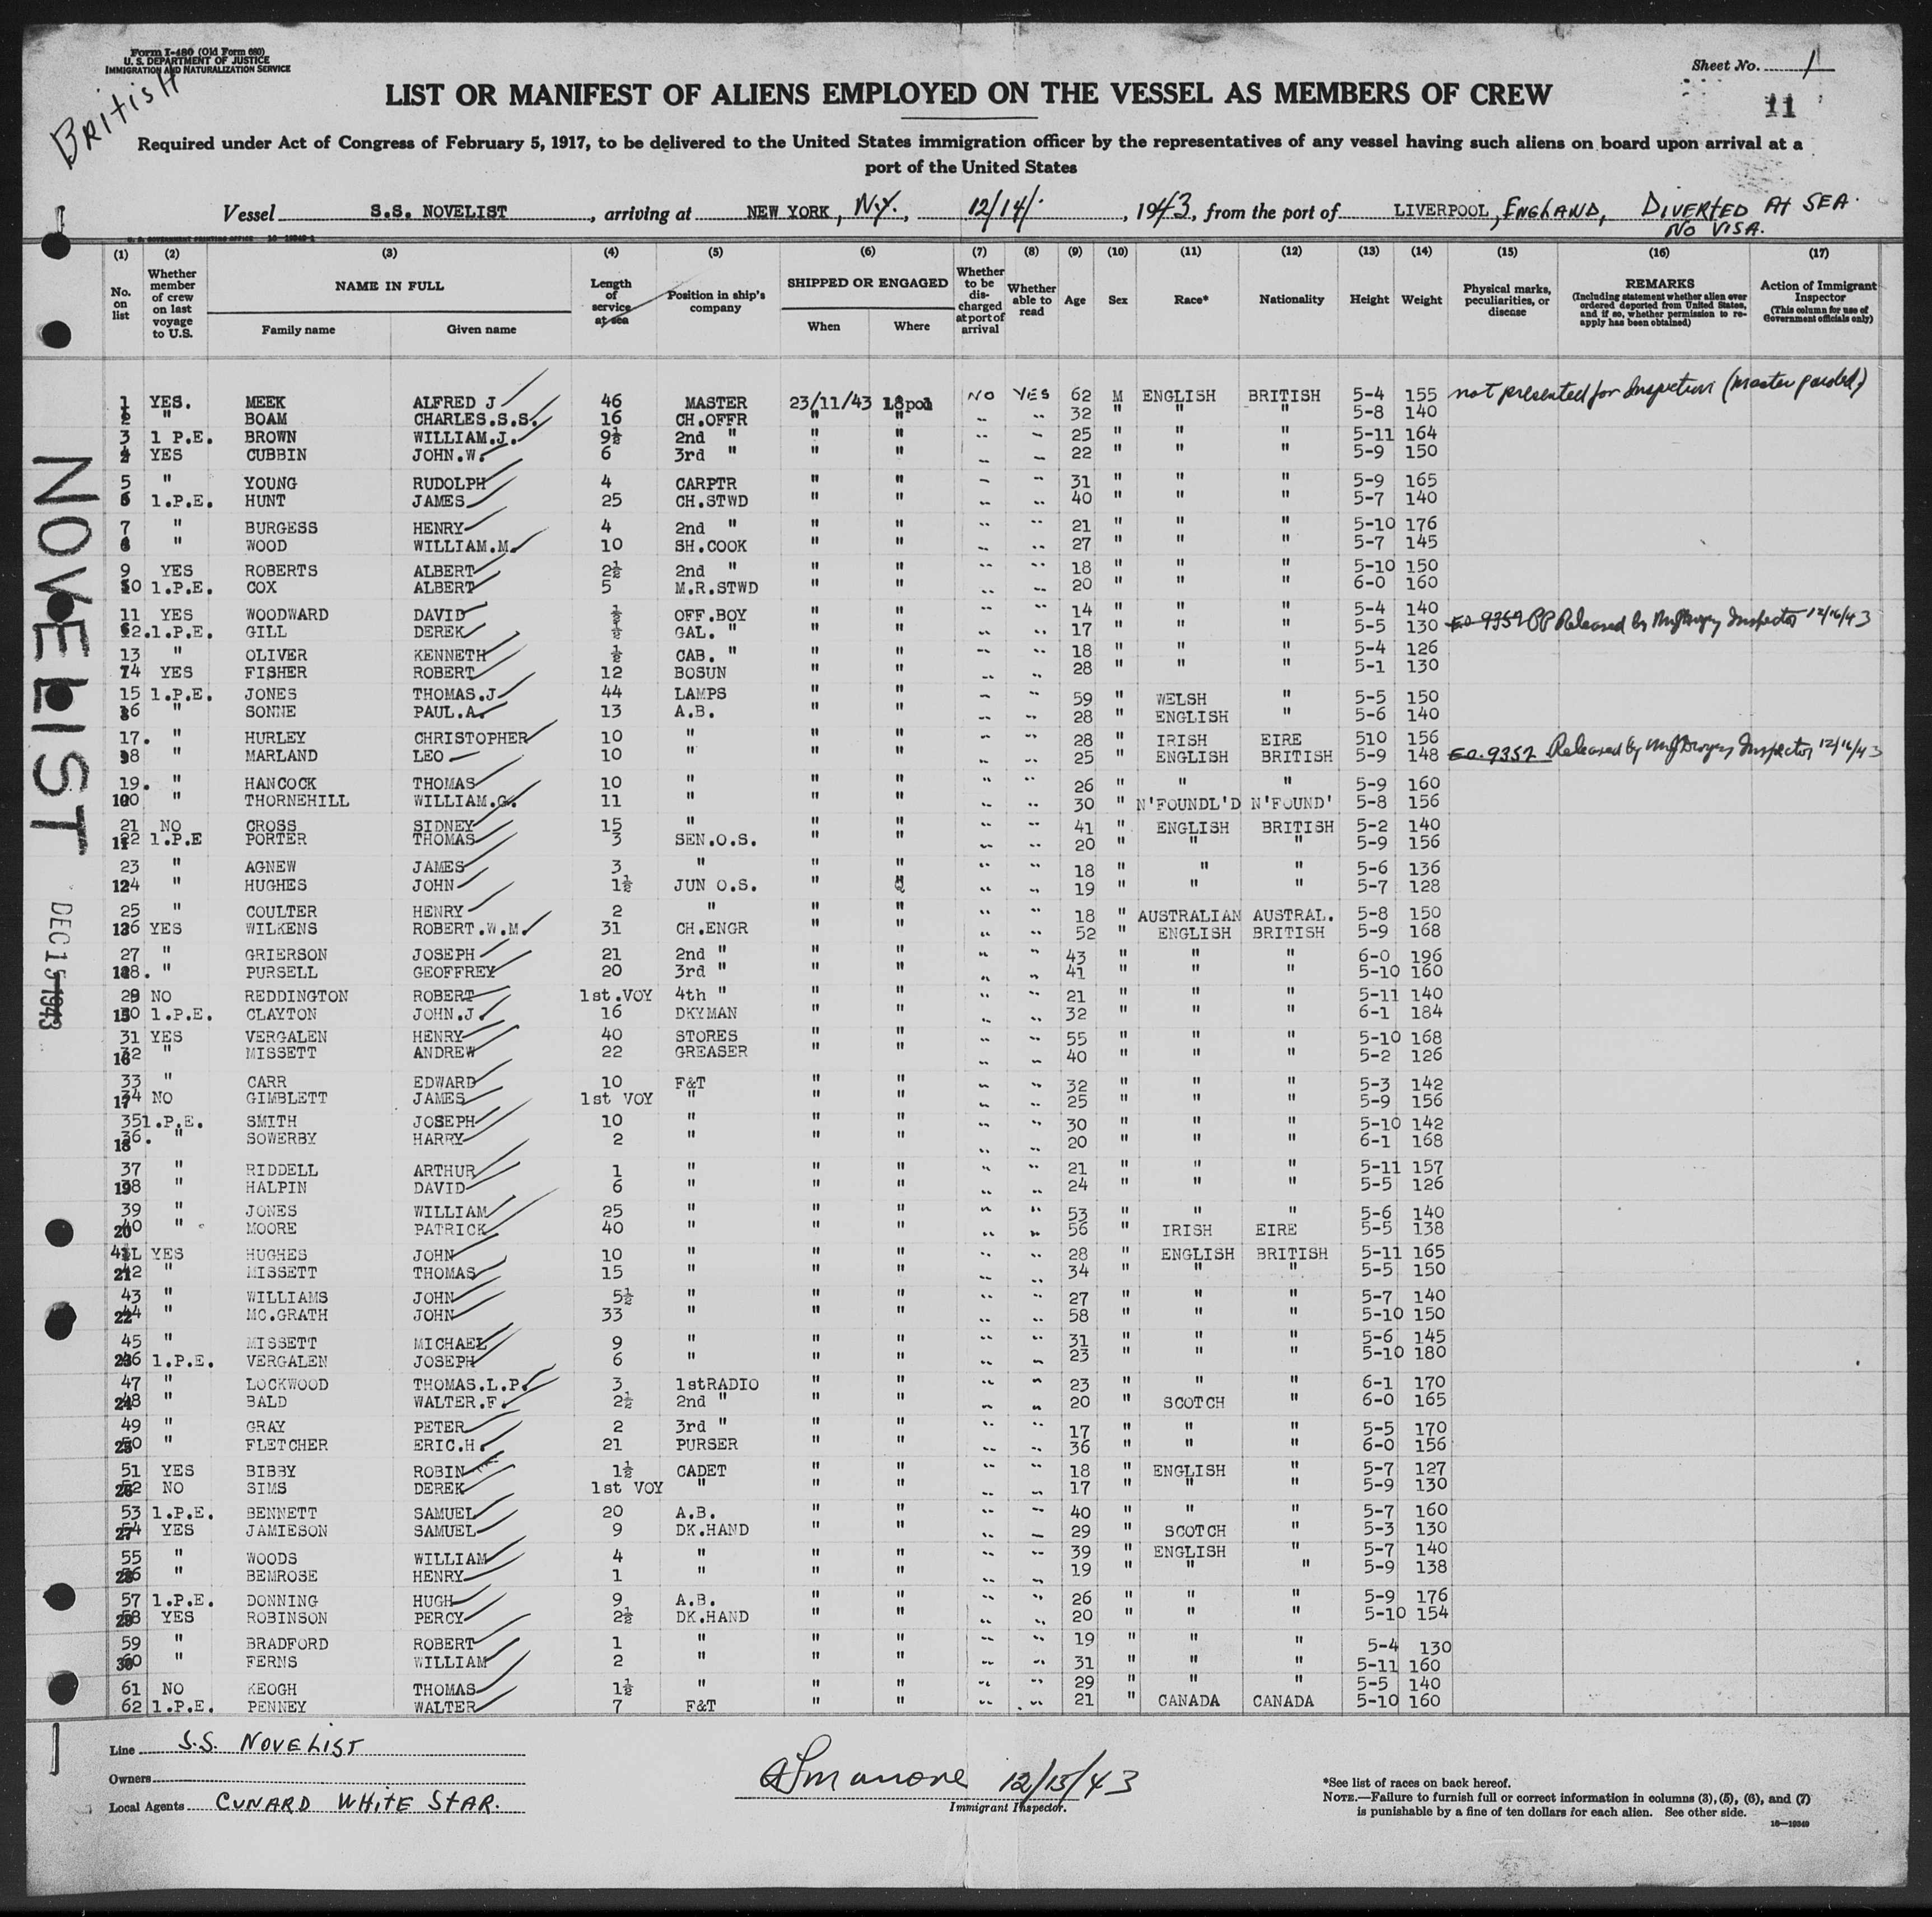 Form I-480 (Old Form 680)
U. S. DEPARTMENT OF JUSTICE
IMMIGRATION AND NATURALIZATION SERVICE
British
Sheet No. 1
11
LIST OR MANIFEST OF ALIENS EMPLOYED ON THE VESSEL AS MEMBERS OF CREW
Required under Act of Congress of February 5, 1917, to be delivered to the United States immigration officer by the representatives of any vessel having such aliens on board upon arrival at a
port of the United States
Vessel S.S. NOVELIST, arriving at NEW YORK, N.Y., 12/14/, 1943, from the port of LIVERPOOL, ENGLAND, DIVERTED AT SEA.
NO VISA.
(1) (2) (3) (4) (5) (6) (7) (8) (9) (10) (11) (12) (13) (14) (15) (16) (17)
No. on list Whether member of crew on last voyage to U.S. NAME IN FULL Family name Given name Length of service at sea Position in ship's company SHIPPED OR ENGAGED When Where Whether to be discharged at port of arrival Whether able to read Age Sex Race* Nationality Height Weight Physical marks, peculiarities, or disease REMARKS (Including statement whether alien ever ordered deported from United States, and if so, whether permission to reapply has been obtained) Action of Immigrant Inspector (This column for use of Government officials only)
1 YES. MEEK ALFRED J 46 MASTER 23/11/43 L'pool NO YES 62 M ENGLISH BRITISH 5-4 155 not presented for Inspection (Master paroled)
2 " BOAM CHARLES.S.S. 16 CH.OFFR " " " " 32 " " " 5-8 140
3 1 P.E. BROWN WILLIAM.J. 9½ 2nd " " " " " 25 " " " 5-11 164
4 YES CUBBIN JOHN.W. 6 3rd " " " " " 22 " " " 5-9 150
5 " YOUNG RUDOLPH 4 CARPTR " " " " 31 " " " 5-9 165
6 1.P.E. HUNT JAMES 25 CH.STWD " " " " 40 " " " 5-7 140
7 " BURGESS HENRY 4 2nd " " " " " 21 " " " 5-10 176
8 " WOOD WILLIAM.M. 10 SH.COOK " " " " 27 " " " 5-7 145
9 YES ROBERTS ALBERT 2½ 2nd " " " " " 18 " " " 5-10 150
10 1.P.E. COX ALBERT 5 M.R.STWD " " " " 20 " " " 6-0 160
11 YES WOODWARD DAVID ½ OFF.BOY " " " " 14 " " " 5-4 140
12. 1.P.E. GILL DEREK ½ GAL. " " " " " 17 " " " 5-5 130 E.O. 9352 PP Released by Inspector 12/16/43
13 " OLIVER KENNETH ½ CAB. " " " " " 18 " " " 5-4 126
14 YES FISHER ROBERT 12 BOSUN " " " " 28 " " " 5-1 130
15 1.P.E. JONES THOMAS.J 44 LAMPS " " " " 59 " WELSH " 5-5 150
16 " SONNE PAUL.A. 13 A.B. " " " " 28 " ENGLISH " 5-6 140
17. " HURLEY CHRISTOPHER 10 " " " " " 28 " IRISH EIRE 510 156
18 " MARLAND LEO 10 " " " " " 25 " ENGLISH BRITISH 5-9 148 E.O. 9352 Released by Inspector 12/16/43
19. " HANCOCK THOMAS 10 " " " " " 26 " " " 5-9 160
20 " THORNEHILL WILLIAM.G. 11 " " " " " 30 " N'FOUNDL'D N'FOUND' 5-8 156
21 NO CROSS SIDNEY 15 " " " " " 41 " ENGLISH BRITISH 5-2 140
22 1.P.E PORTER THOMAS 3 SEN.O.S. " " " " 20 " " " 5-9 156
23 " AGNEW JAMES 3 " " " " " 18 " " " 5-6 136
24 " HUGHES JOHN 1½ JUN O.S. " " " " 19 " " " 5-7 128
25 " COULTER HENRY 2 " " " " " 18 " AUSTRALIAN AUSTRAL. 5-8 150
26 YES WILKENS ROBERT.W.M. 31 CH.ENGR " " " " 52 " ENGLISH BRITISH 5-9 168
27 " GRIERSON JOSEPH 21 2nd " " " " " 43 " " " 6-0 196
28. " PURSELL GEOFFREY 20 3rd " " " " " 41 " " " 5-10 160
29 NO REDDINGTON ROBERT 1st.VOY 4th " " " " " 21 " " " 5-11 140
30 1.P.E. CLAYTON JOHN.J. 16 DKYMAN " " " " 32 " " " 6-1 184
31 YES VERGALEN HENRY 40 STORES " " " " 55 " " " 5-10 168
32 " MISSETT ANDREW 22 GREASER " " " " 40 " " " 5-2 126
33 " CARR EDWARD 10 F&T " " " " 32 " " " 5-3 142
34 NO GIMBLETT JAMES 1st VOY " " " " " 25 " " " 5-9 156
35 1.P.E. SMITH JOSEPH 10 " " " " " 30 " " " 5-10 142
36. " SOWERBY HARRY 2 " " " " " 20 " " " 6-1 168
37 " RIDDELL ARTHUR 1 " " " " " 21 " " " 5-11 157
38 " HALPIN DAVID 6 " " " " " 24 " " " 5-5 126
39 " JONES WILLIAM 25 " " " " " 53 " " " 5-6 140
40 " MOORE PATRICK 40 " " " " " 56 " IRISH EIRE 5-5 138
41 YES HUGHES JOHN 10 " " " " " 28 " ENGLISH BRITISH 5-11 165
42 " MISSETT THOMAS 15 " " " " " 34 " " " 5-5 150
43 " WILLIAMS JOHN 5½ " " " " " 27 " " " 5-7 140
44 " MC.GRATH JOHN 33 " " " " " 58 " " " 5-10 150
45 " MISSETT MICHAEL 9 " " " " " 31 " " " 5-6 145
46 1.P.E. VERGALEN JOSEPH 6 " " " " " 23 " " " 5-10 180
47 " LOCKWOOD THOMAS.L.P. 3 1stRADIO " " " " 23 " " " 6-1 170
48 " BALD WALTER.F. 2½ 2nd " " " " " 20 " SCOTCH " 6-0 165
49 " GRAY PETER 2 3rd " " " " " 17 " " " 5-5 170
50 " FLETCHER ERIC.H. 21 PURSER " " " " 36 " " " 6-0 156
51 YES BIBBY ROBIN 1½ CADET " " " " 18 " ENGLISH " 5-7 127
52 NO SIMS DEREK 1st VOY " " " " " 17 " " " 5-9 130
53 1.P.E. BENNETT SAMUEL 20 A.B. " " " " 40 " " " 5-7 160
54 YES JAMIESON SAMUEL 9 DK.HAND " " " " 29 " SCOTCH " 5-3 130
55 " WOODS WILLIAM 4 " " " " " 39 " ENGLISH " 5-7 140
56 " BEMROSE HENRY 1 " " " " " 19 " " " 5-9 138
57 1.P.E. DONNING HUGH 9 A.B. " " " " 26 " " " 5-9 176
58 YES ROBINSON PERCY 2½ DK.HAND " " " " 20 " " " 5-10 154
59 " BRADFORD ROBERT 1 " " " " " 19 " " " 5-4 130
60 " FERNS WILLIAM 2 " " " " " 31 " " " 5-11 160
61 NO KEOGH THOMAS 1½ " " " " " 29 " " " 5-5 140
62 1.P.E. PENNEY WALTER 7 F&T " " " " 21 " CANADA CANADA 5-10 160
NOVELIST
DEC 15 1943
Line S.S. NOVELIST
Owners
Local Agents CUNARD WHITE STAR.
12/15/43
Immigrant Inspector.
*See list of races on back hereof.
NOTE.—Failure to furnish full or correct information in columns (3), (5), (6), and (7)
is punishable by a fine of ten dollars for each alien. See other side.
16—19349